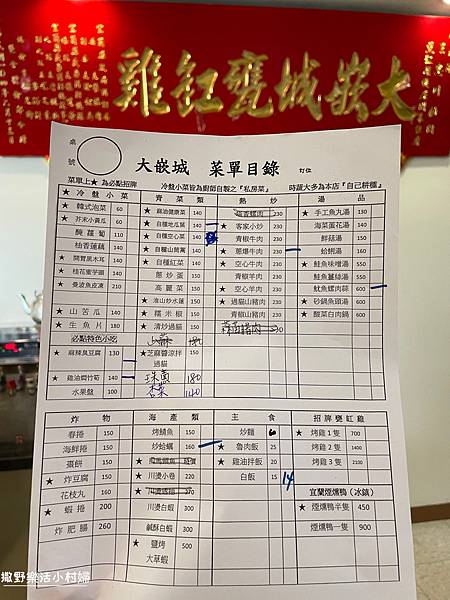 大嵌城甕缸雞
桌號
大嵌城 菜單目錄
訂位
菜單上★為必點招牌 冷盤小菜皆為廚師自製之『私房菜』 時蔬大多為本店『自己耕種』
冷盤小菜
★韓式泡菜 60
★芥末小黃瓜 60
醃蘿蔔 110
柚香蓮藕 140
★開胃黑木耳 140
★桂花蜜芋頭 140
★曼波魚皮凍 210
★山苦瓜 140
★生魚片 180
必點特色小吃
★麻辣臭豆腐 130
★雞油燜竹筍 140
水果盤 100
青菜類
★麻油健康菜 140
★自種地瓜葉 140
★自種空心菜 140
★自種山茼蒿 140
★自種紅菜 140
蔥炒蛋 140
高麗菜 140
★淮山炒水蓮 140
★糯米椒 140
★清炒過貓 140
山蘇 180
★芝麻醬涼拌過貓
珠蔥 180
杏菜 140
熱炒
塔香螺肉 230
★客家小炒 230
青椒牛肉 230
★蔥爆牛肉 230
★空心牛肉 230
青椒羊肉 230
★空心羊肉 230
★過貓山豬肉 230
青椒山豬肉 230
湯品
★手工魚丸湯 130
海菜蛋花湯 140
鮮菇湯 140
★蛤蜊湯 160
★鮮魚味噌湯 550
★鮮魚薑絲湯 550
★魷魚螺肉蒜 600
★砂鍋魚頭湯 600
★酸菜白肉鍋 600
炸物
春捲 150
海鮮捲 150
棗餅 150
★炸豆腐 150
花枝丸 160
★蝦捲 200
★炸肥腸 260
海產類
烤鯖魚 150
炒蛤蠣 160
★川燙小卷 220
★川燙透抽 370
川燙白蝦 300
鹹酥白蝦 300
★鹽烤大草蝦 500
主食
炒麵 60
★魯肉飯 25
★雞油拌飯 20
白飯 15 14
招牌甕缸雞
★烤雞1隻 700
★烤雞2隻 1400
★烤雞3隻 2100
宜蘭煙燻鴨(冰鎮)
★煙燻鴨半隻 450
煙燻鴨一隻 900
撒野樂活小村婦